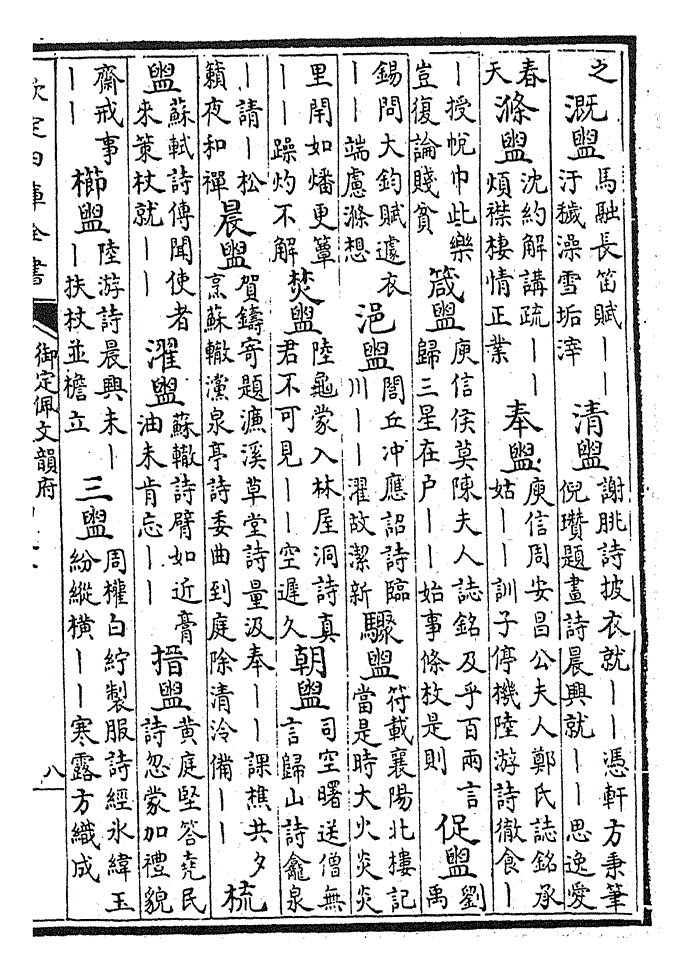 之溉盥馬融長笛賦——汙穢澡雪垢滓清盥謝朓詩披衣就——憑軒方秉筆倪瓚題畫詩晨興就——思逸愛
春天滌盥沈約解講疏——煩襟棲情正業奉盥庾信周安昌公夫人鄭氏誌銘承姑——訓子停機陸游詩徹食—
—授帨巾此樂豈復論賤貧箴盥庾信侯莫陳夫人誌銘及乎百兩言歸三星在户——始事條枚是則促盥劉禹
錫問大鈞賦遽衣——端慮滌想浥盥閭丘冲應詔詩臨川——濯故潔新驟盥符載襄陽北樓記當是時大火炎炎
里閈如燔更簟——躁灼不解焚盥陸龜蒙入林屋洞詩真君不可見——空遲久朝盥司空曙送僧無言歸山詩龕泉
—請—松籟夜和禪晨盥賀鑄寄題濂溪草堂詩量汲奉——課樵共夕烹蘇轍瀼泉亭詩委曲到庭除清泠備——梳
盥蘇軾詩傳聞使者來策杖就——濯盥蘇轍詩譬如近膏油未肯忘——搢盥黄庭堅答堯民詩忽蒙加禮貌
齋戒事——櫛盥陸游詩晨興未——扶杖並檐立三盥周權白紵製服詩經氷緯玉紛縱橫——寒露方織成
欽定四庫全書
御定佩文韻府
八